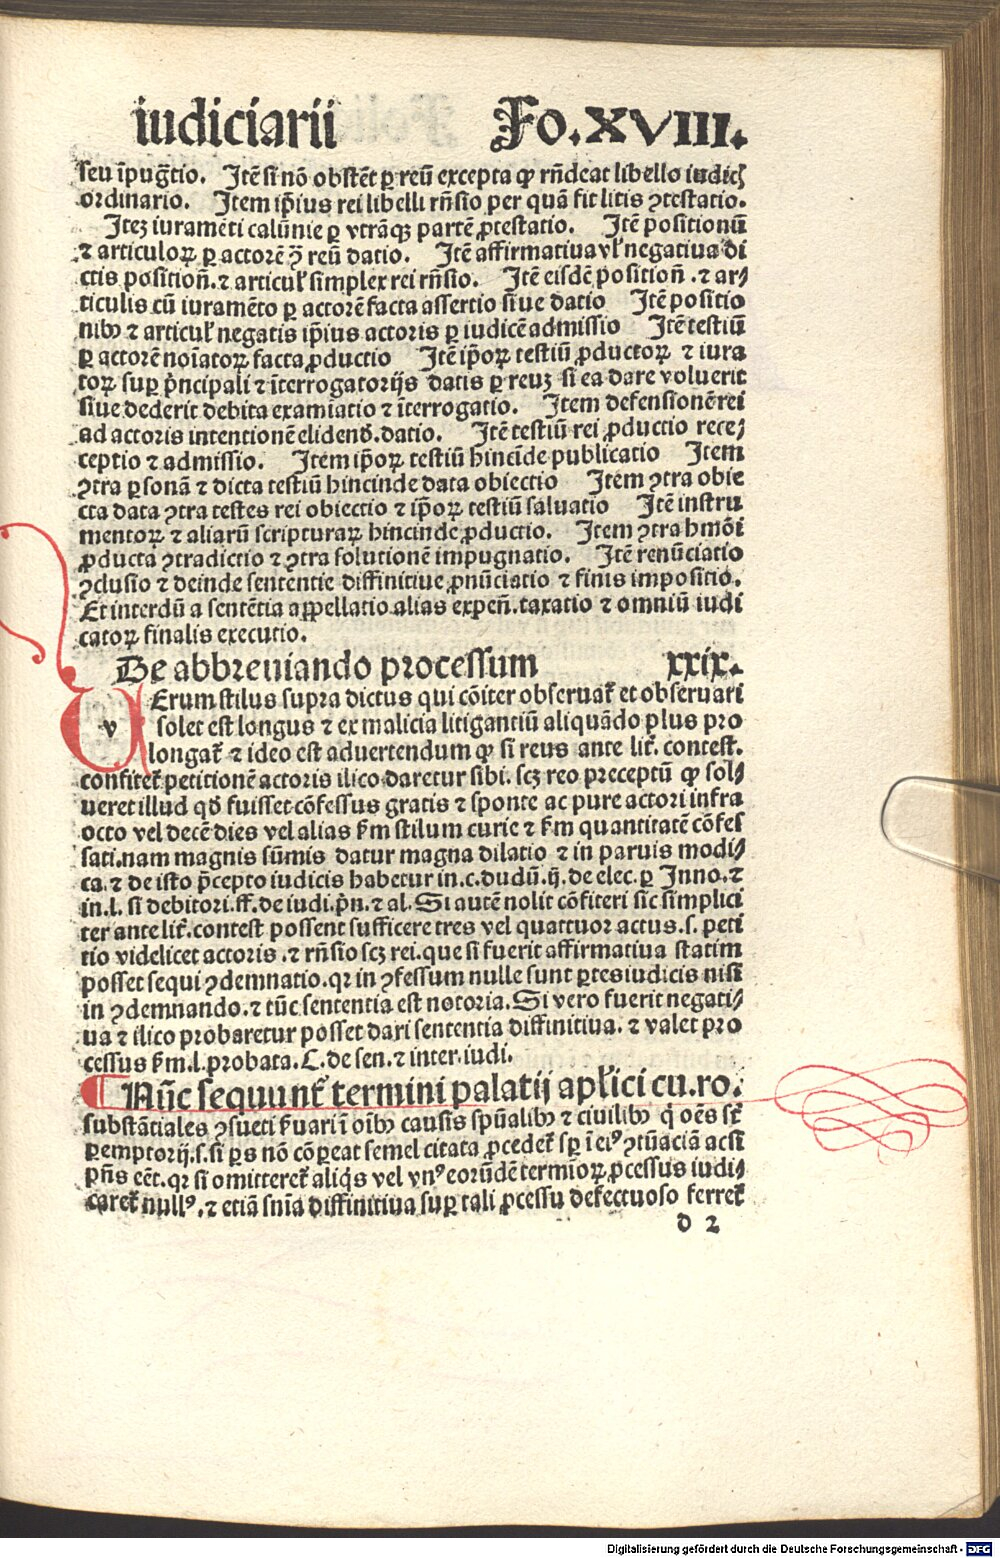 iudiciarii Fo.XVIII.
seu ip̄ug̃tio. Itē si nō obstēt ꝑ reū excepta ꝙ rn̄deat libello iudicꝫ
ordinario. Item ip̄ius rei libelli rn̄sio per quā fit litis ꝯtestatio.
Iteꝫ iuramēti calūnie ꝑ vtrāqꝫ partē ꝓtestatio. Itē positionū
⁊ articuloꝝ ꝑ actorē ꝯ̄ reū datio. Itē affirmatiua vl̓ negatiua di
ctis position̄.⁊ articul̓ simplex rei rn̄sio. Itē eisdē position̄.⁊ ar⸗
ticulis cū iuramēto ꝑ actorē facta assertio siue datio Itē positio
nibꝰ ⁊ articul̓ negatis ip̄ius actoris ꝑ iudicē admissio Itē testiū
ꝑ actorē noīatoꝝ facta ꝓductio Itē ip̄oꝝ testiū ꝓductoꝝ ⁊ iura
toꝝ suꝑ p̄ncipali ⁊ īterrogatorijs datis ꝑ reuꝫ si ea dare voluerit
siue dederit debita examiatio ⁊ īterrogatio. Item defensionē rei
ad actoris intentionē elidend̄.datio. Itē testiū rei ꝓductio rece⸗
ceptio ⁊ admissio. Item ip̄oꝝ testiū hincīde publicatio Item
ꝯtra ꝑsonā ⁊ dicta testiū hincinde data obiectio Item ꝯtra obie
cta data ꝯtra testes rei obiectio ⁊ ip̄oꝝ testiū saluatio Itē instru
mentoꝝ ⁊ aliarū scripturaꝝ hincinde ꝓductio. Item ꝯtra hm̄ōi
ꝓducta ꝯtradictio ⁊ ꝯtra solutionē impugnatio. Itē renūciatio
ꝯclusio ⁊ deinde sententie diffinitiue ꝓnūciatio ⁊ finis impositio.
Et interdū a sentētia appellatio alias expen̄.taxatio ⁊ omniū iudi
catoꝝ finalis executio.
De abbreuiando processum xxix.
v Erum stilus supra dictus qui cōiter obseruat̃ et obseruari
solet est longus ⁊ ex malicia litigantiū aliquādo plus pro
longat̃ ⁊ ideo est aduertendum ꝙ si reus ante lit̃. contest.
confitet̃ petitionē actoris ilico daretur sibi. scꝫ reo preceptū ꝙ sol⸗
ueret illud qd̄ fuisset cōfessus gratis ⁊ sponte ac pure actori infra
octo vel decē dies vel alias s̄m stilum curie ⁊ s̄m quantitatē cōfes
sati.nam magnis sūmis datur magna dilatio ⁊ in paruis modi⸗
ca.⁊ de isto p̄cepto iudicis habetur in.c.dudū.ij.de elec.ꝑ Inno.⁊
in.l. si debitori.ff.de iudi.p̄n.⁊ al. Si autē nolit cōfiteri sic simplici
ter ante lit̃.contest possent sufficere tres vel quattuor actus.s. peti
tio videlicet actoris .⁊ rn̄sio scꝫ rei.que si fuerit affirmatiua statim
posset sequi ꝯdemnatio.qr in ꝯfessum nulle sunt ꝑtes iudicis nisi
in ꝯdemnando.⁊ tūc sententia est notoria. Si vero fuerit negati⸗
ua ⁊ ilico probaretur posset dari sententia diffinitiua. ⁊ valet pro
cessus s̄m.l.probata. C. de sen.⁊ inter.iudi.
¶ Nūc sequunt̃ termini palatij apl̓ici cu.ro.
substātiales ꝯsueti s̓uari ī oībꝰ causis spūalibꝰ ⁊ ciuilibꝰ q̇ oēs st̃
ꝑemptorij.s.si ꝑs nō cōꝑeat semel citata ꝓcedet̃ sꝑ ī eiꝰ ꝯtūaciā acsi
p̄ns eēt.qr si omitteret̃ aliq̇s vel vnꝰ eorūdē termīoꝝ ꝓcessus iudi⸗
caret̃ nullꝰ.⁊ etiā sn̄ia diffinitiua suꝑ tali ꝓcessu defectuoso ferret̃
d 2
Digitalisierung gefördert durch die Deutsche Forschungsgemeinschaft - DFG